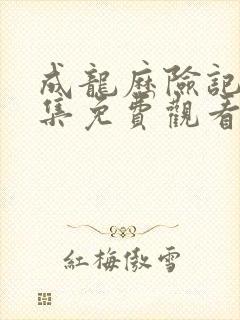 成龍歷險記
集免費觀看
紅梅傲雪